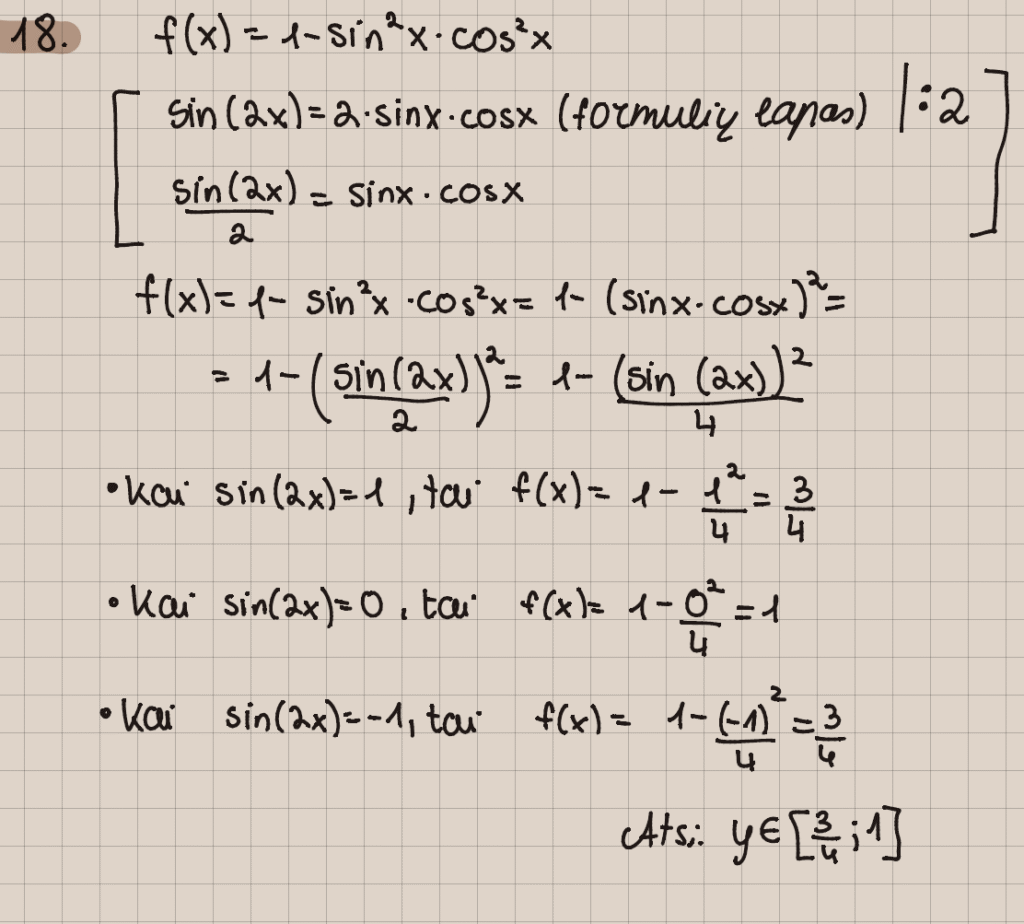 18. f(x) = 1 - sin²x · cos²x
[ sin(2x) = 2 · sinx · cosx (formulių lapas) |:2 ]
sin(2x)/2 = sinx · cosx
f(x) = 1 - sin²x · cos²x = 1 - (sinx · cosx)² =
= 1 - (sin(2x)/2)² = 1 - (sin (2x))²/4
• Kai sin(2x) = 1, tai f(x) = 1 - 1²/4 = 3/4
• Kai sin(2x) = 0, tai f(x) = 1 - 0²/4 = 1
• Kai sin(2x) = -1, tai f(x) = 1 - (-1)²/4 = 3/4
Ats.: y ∈ [3/4 ; 1]